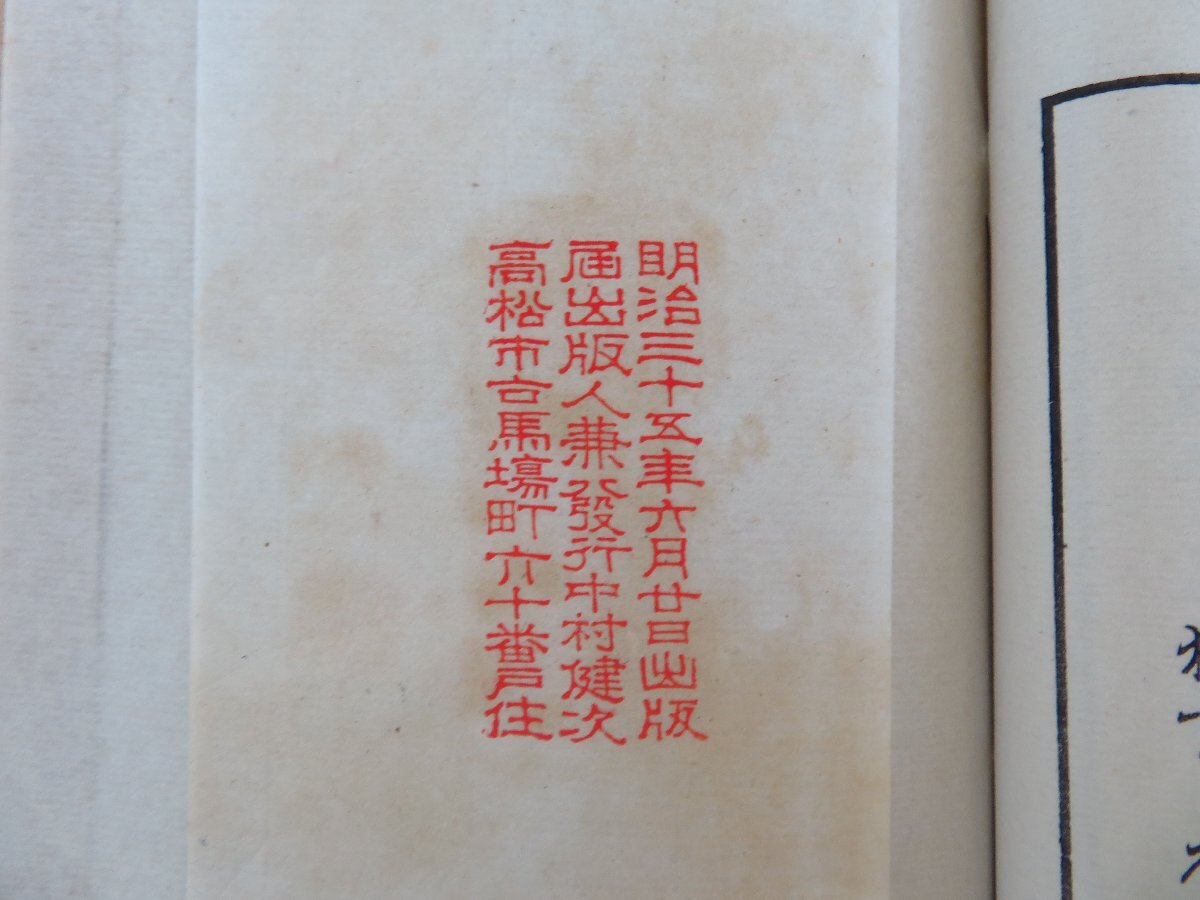 明治三十五年六月廿日出版
届出版人兼發行中村健次
高松市古馬場町六十番戸住